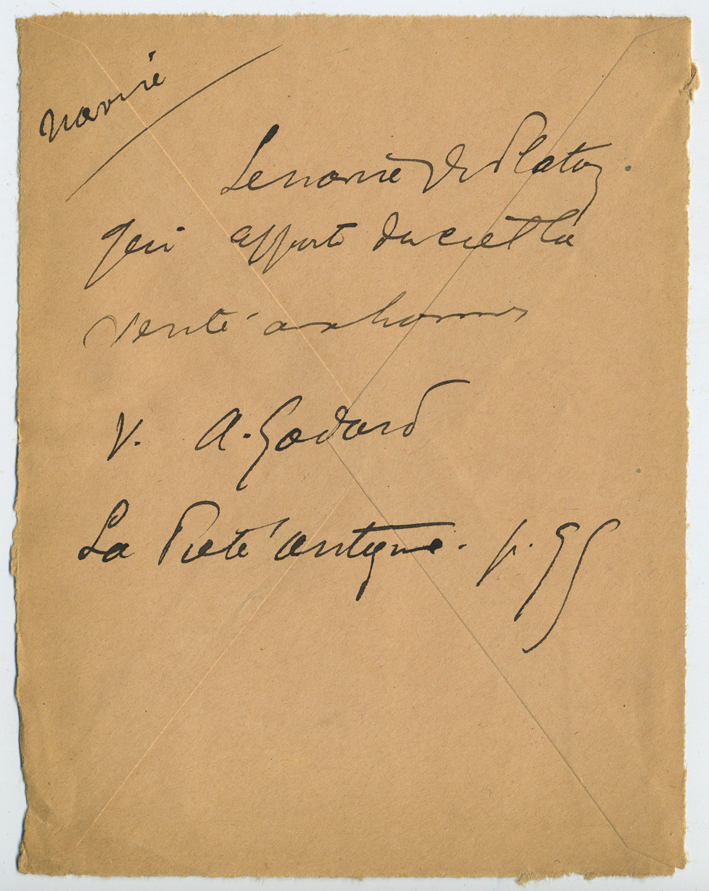 navire
Le navire de Platon.
qui apporte du ciel la
vérité aux hommes
V. A. Godard
La Piété antique. p. 99